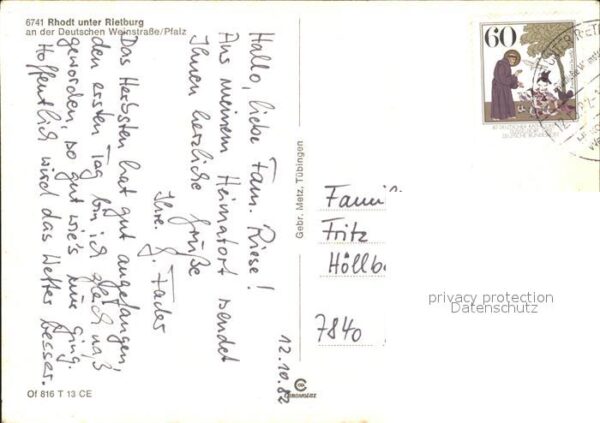 6741 Rhodt unter Rietburg
an der Deutschen Weinstraße/Pfalz
Hallo, liebe Fam. Riese!
Aus meinem Heimatort sendet
Ihnen herzliche Grüße
Ihre G. Fader
12.10.82
Das Herbsten hat gut angefangen,
den ersten Tag bin ich gleich naß
geworden, so gut wie's nur ging.
Hoffentlich wird das Wetter besser.
Gebr. Metz, Tübingen
Of 816 T 13 CE
60
Famil
Fritz
Höllb
7840
privacy protection
Datenschutz